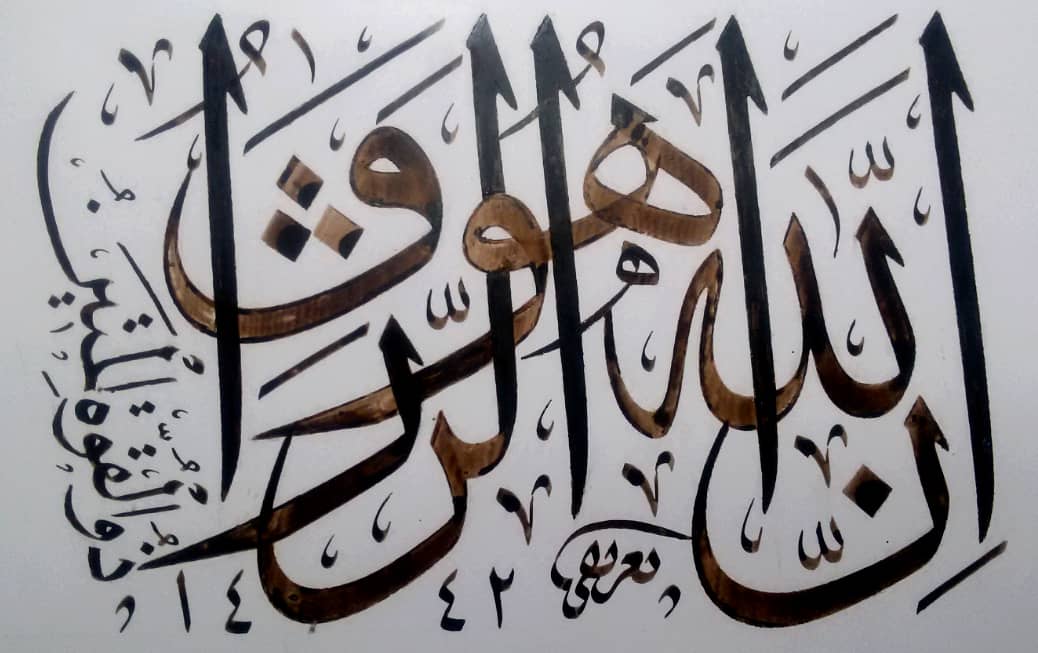 اِنَّ اللّٰهَ هُوَ الرَّزَّاقُ
ذُو الْقُوَّةِ الْمَتِينُ
١٤٤٢